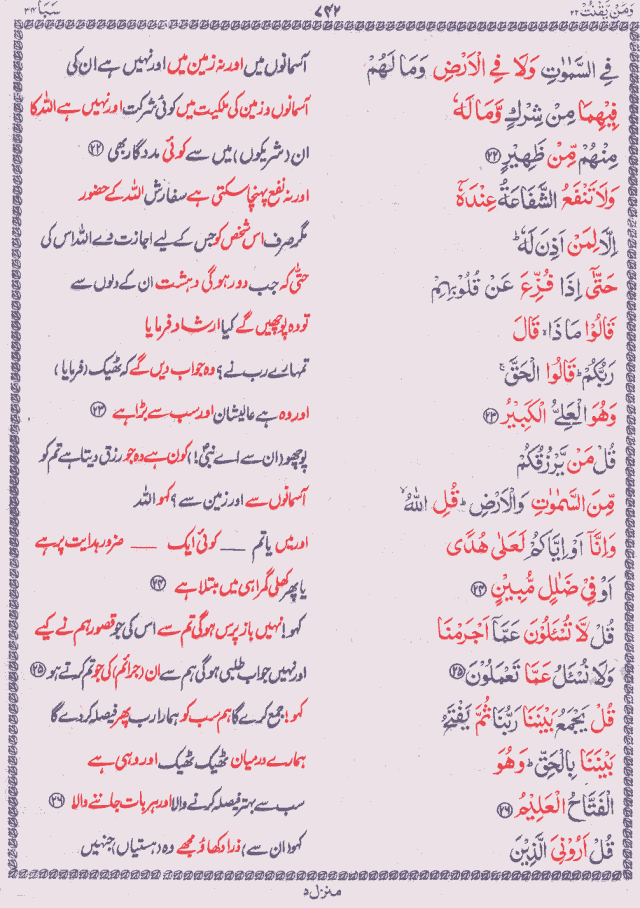 وَمَنْ يَّقْنُتْ ٢٢
٧٤٢
سَبَا ٣٤
فِي السَّمٰوٰتِ وَلَا فِي الْاَرْضِ وَمَا لَهُمْ
آسمانوں میں اور نہ زمین میں اور نہیں ہے ان کی
فِيْهِمَا مِنْ شِرْكٍ وَّمَا لَهٗ
آسمانوں و زمین کی ملکیت میں کوئی شرکت اور نہیں ہے اللہ کا
مِنْهُمْ مِّنْ ظَهِيْرٍ ﴿٢٢﴾
ان (شریکوں) میں سے کوئی مددگار بھی ﴿٢٢﴾
وَلَا تَنْفَعُ الشَّفَاعَةُ عِنْدَهٗٓ
اور نہ نفع پہنچا سکتی ہے سفارش اللہ کے حضور
اِلَّا لِمَنْ اَذِنَ لَهٗ ؕ
مگر صرف اس شخص کو جس کے لیے اجازت دے اللہ اس کی
حَتّٰٓى اِذَا فُزِّعَ عَنْ قُلُوْبِهِمْ
حتّٰی کہ جب دور ہو گی دہشت ان کے دلوں سے
قَالُوْا مَاذَا ۙ قَالَ
تو وہ پوچھیں گے کیا ارشاد فرمایا
رَبُّكُمْ ؕ قَالُوا الْحَقَّ ۚ
تمہارے رب نے؟ وہ جواب دیں گے کہ ٹھیک (فرمایا)
وَهُوَ الْعَلِيُّ الْكَبِيْرُ ﴿٢٣﴾
اور وہ ہے عالیشان اور سب سے بڑا ہے ﴿٢٣﴾
قُلْ مَنْ يَّرْزُقُكُمْ
پوچھو (ان سے اے نبیؐ!) کون ہے وہ جو رزق دیتا ہے تم کو
مِّنَ السَّمٰوٰتِ وَالْاَرْضِ ؕ قُلِ اللّٰهُ ۙ
آسمانوں سے اور زمین سے؟ کہو اللہ
وَاِنَّآ اَوْ اِيَّاكُمْ لَعَلٰى هُدًى
اور میں یا تم ــــ کوئی ایک ــــ ضرور ہدایت پر ہے
اَوْ فِيْ ضَلٰلٍ مُّبِيْنٍ ﴿٢٤﴾
یا پھر کھلی گمراہی میں مبتلا ہے ﴿٢٤﴾
قُلْ لَّا تُسْـَٔلُوْنَ عَمَّآ اَجْرَمْنَا
کہو! نہیں باز پرس ہو گی تم سے اس کی جو قصور ہم نے کیے
وَلَا نُسْـَٔلُ عَمَّا تَعْمَلُوْنَ ﴿٢٥﴾
اور نہیں جواب طلبی ہو گی ہم سے ان (جرائم) کی جو تم کرتے ہو ﴿٢٥﴾
قُلْ يَجْمَعُ بَيْنَنَا رَبُّنَا ثُمَّ يَفْتَحُ
کہو! جمع کرے گا ہم سب کو ہمارا رب پھر فیصلہ کر دے گا
بَيْنَنَا بِالْحَقِّ ؕ وَهُوَ
ہمارے درمیان ٹھیک ٹھیک اور وہی ہے
الْفَتَّاحُ الْعَلِيْمُ ﴿٢٦﴾
سب سے بہتر فیصلہ کرنے والا اور ہر بات جاننے والا ﴿٢٦﴾
قُلْ اَرُوْنِيَ الَّذِيْنَ
کہو (ان سے) ذرا دکھاؤ مجھے وہ (ہستیاں) جنہیں
منزل ۵